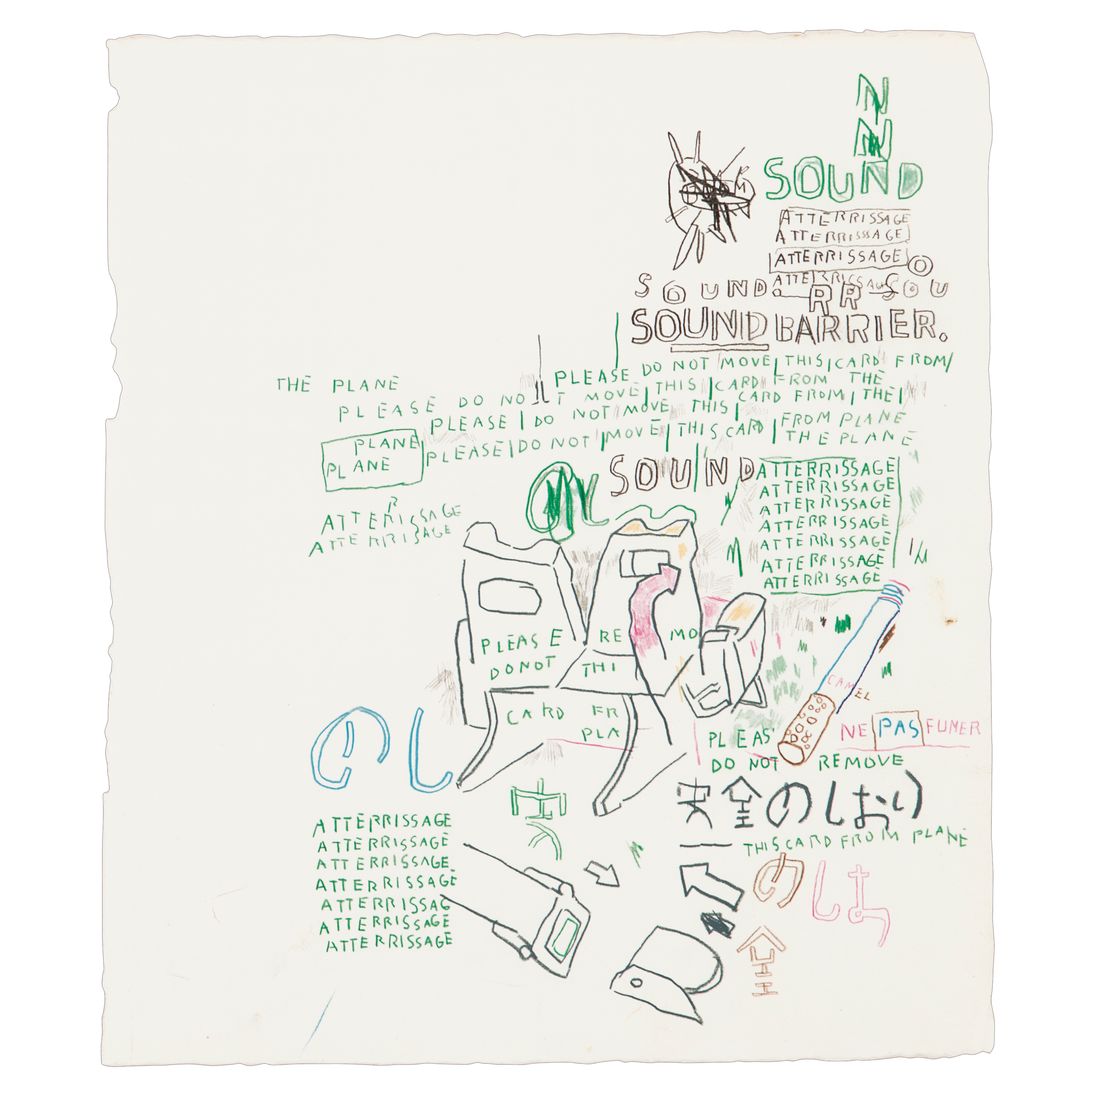 N
N
SOUND
ATTERRISSAGE
ATTERRISSAGE
ATTERRISSAGE
ATTERRISSAGE
SOUND. RR SOU
SOUND BARRIER.
PLEASE DO NOT MOVE THIS CARD FROM
THE PLANE
PLEASE DO NOT MOVE THIS CARD FROM THE
PLEASE DO NOT MOVE THIS CARD FROM THE
PLANE PLEASE DO NOT MOVE THIS CARD FROM PLANE
PLANE THE PLANE
SOUND
ATTERRISSAGE
ATTERRISSAGE
ATTERRISSAGE
ATTERRISSAGE
ATTERRISSAGE
ATTERRISSAGE
ATTERRISSAGE
R
ATTERISSAGE
ATTERRISSAGE
PLEASE REMO
DONOT THI
CARD FR
PLA
CAMEL
NE PAS FUMER
PLEAS
DO NOT REMOVE
のし
安全のしおり
THIS CARD FROM PLANE
のしお
全
ATTERRISSAGE
ATTERRISSAGE
ATTERRISSAGE
ATTERRISSAGE
ATTERRISSAG
ATTERRISSAGE
ATTERRISSAGE